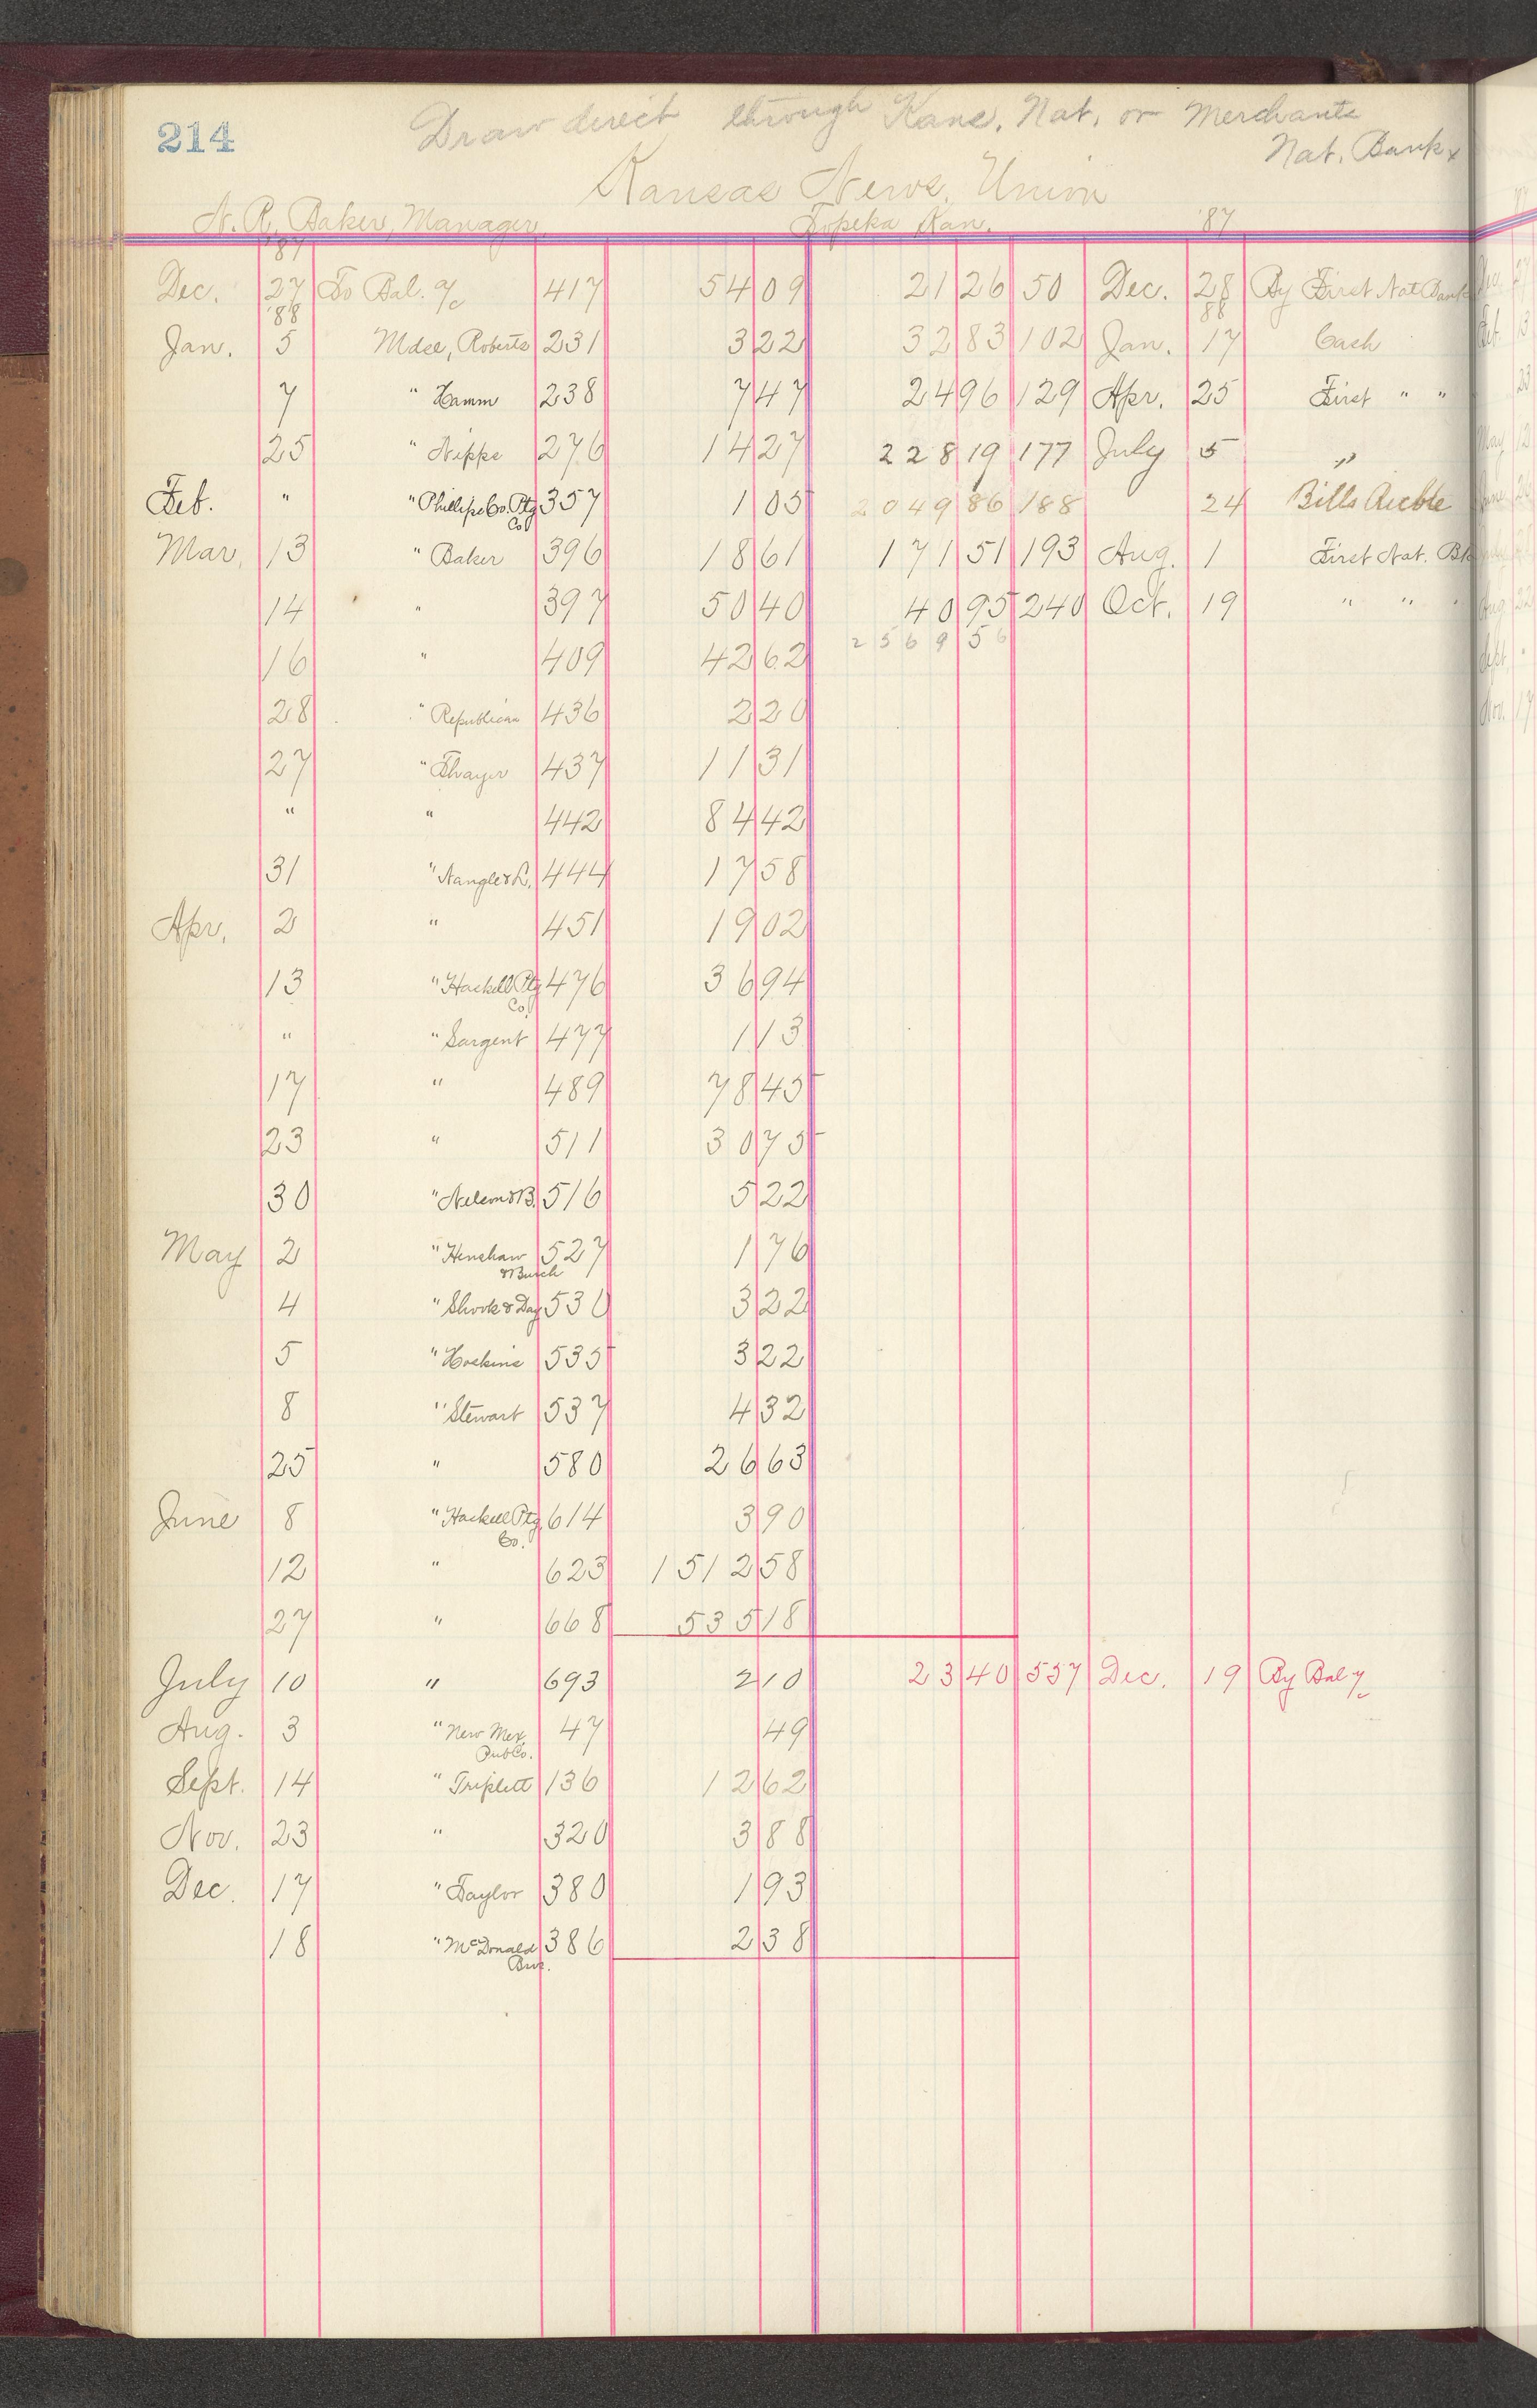 214
Draw direct through Kans. Nat. or Merchants
Nat. Bank
Kansas News. Union
N. R. Baker, Manager, Topeka Kan. '87
'87
Dec. 27 To Bal. a/c 417 54 09 21 26 50 Dec. 28 By First Nat Bank
'88 88
Jan. 5 Mdse, Roberts 231 3 22 32 83 102 Jan. 17 Cash
7 " Hamm 238 7 47 24 96 129 Apr. 25 First " "
25 " Nipps 276 14 27 228 19 177 July 5 "
Feb. " " Phillips Co. Ptg Co 357 1 05 2049 86 188 24 Bills Recble
Mar. 13 " Baker 396 18 61 171 51 193 Aug. 1 First Nat. Bk
14 " 397 50 40 40 95 240 Oct. 19 " " "
2569 56
16 " 409 42 62
28 " Republican 436 2 20
27 " Thayer 437 11 31
" " 442 84 42
31 " Nangle & L. 444 17 58
Apr. 2 " 451 19 02
13 " Haskell Ptg Co. 476 36 94
" " Sargent 477 1 13
17 " 489 78 45
23 " 511 30 75
30 " Nelson & B. 516 5 22
May 2 " Henshaw & Burch 527 1 76
4 " Shook & Day 530 3 22
5 " Hoskins 535 3 22
8 " Stewart 537 4 32
25 " 580 26 63
June 8 " Haskell Ptg Co. 614 3 90
12 " 623 1512 58
27 " 668 535 18
July 10 " 693 2 10 23 40 557 Dec. 19 By Bal a/c
Aug. 3 " New Mex. Pub Co. 47 49
Sept. 14 " Triplett 136 12 62
Nov. 23 " 320 3 88
Dec. 17 " Taylor 380 1 93
18 " McDonald Bros. 386 2 38